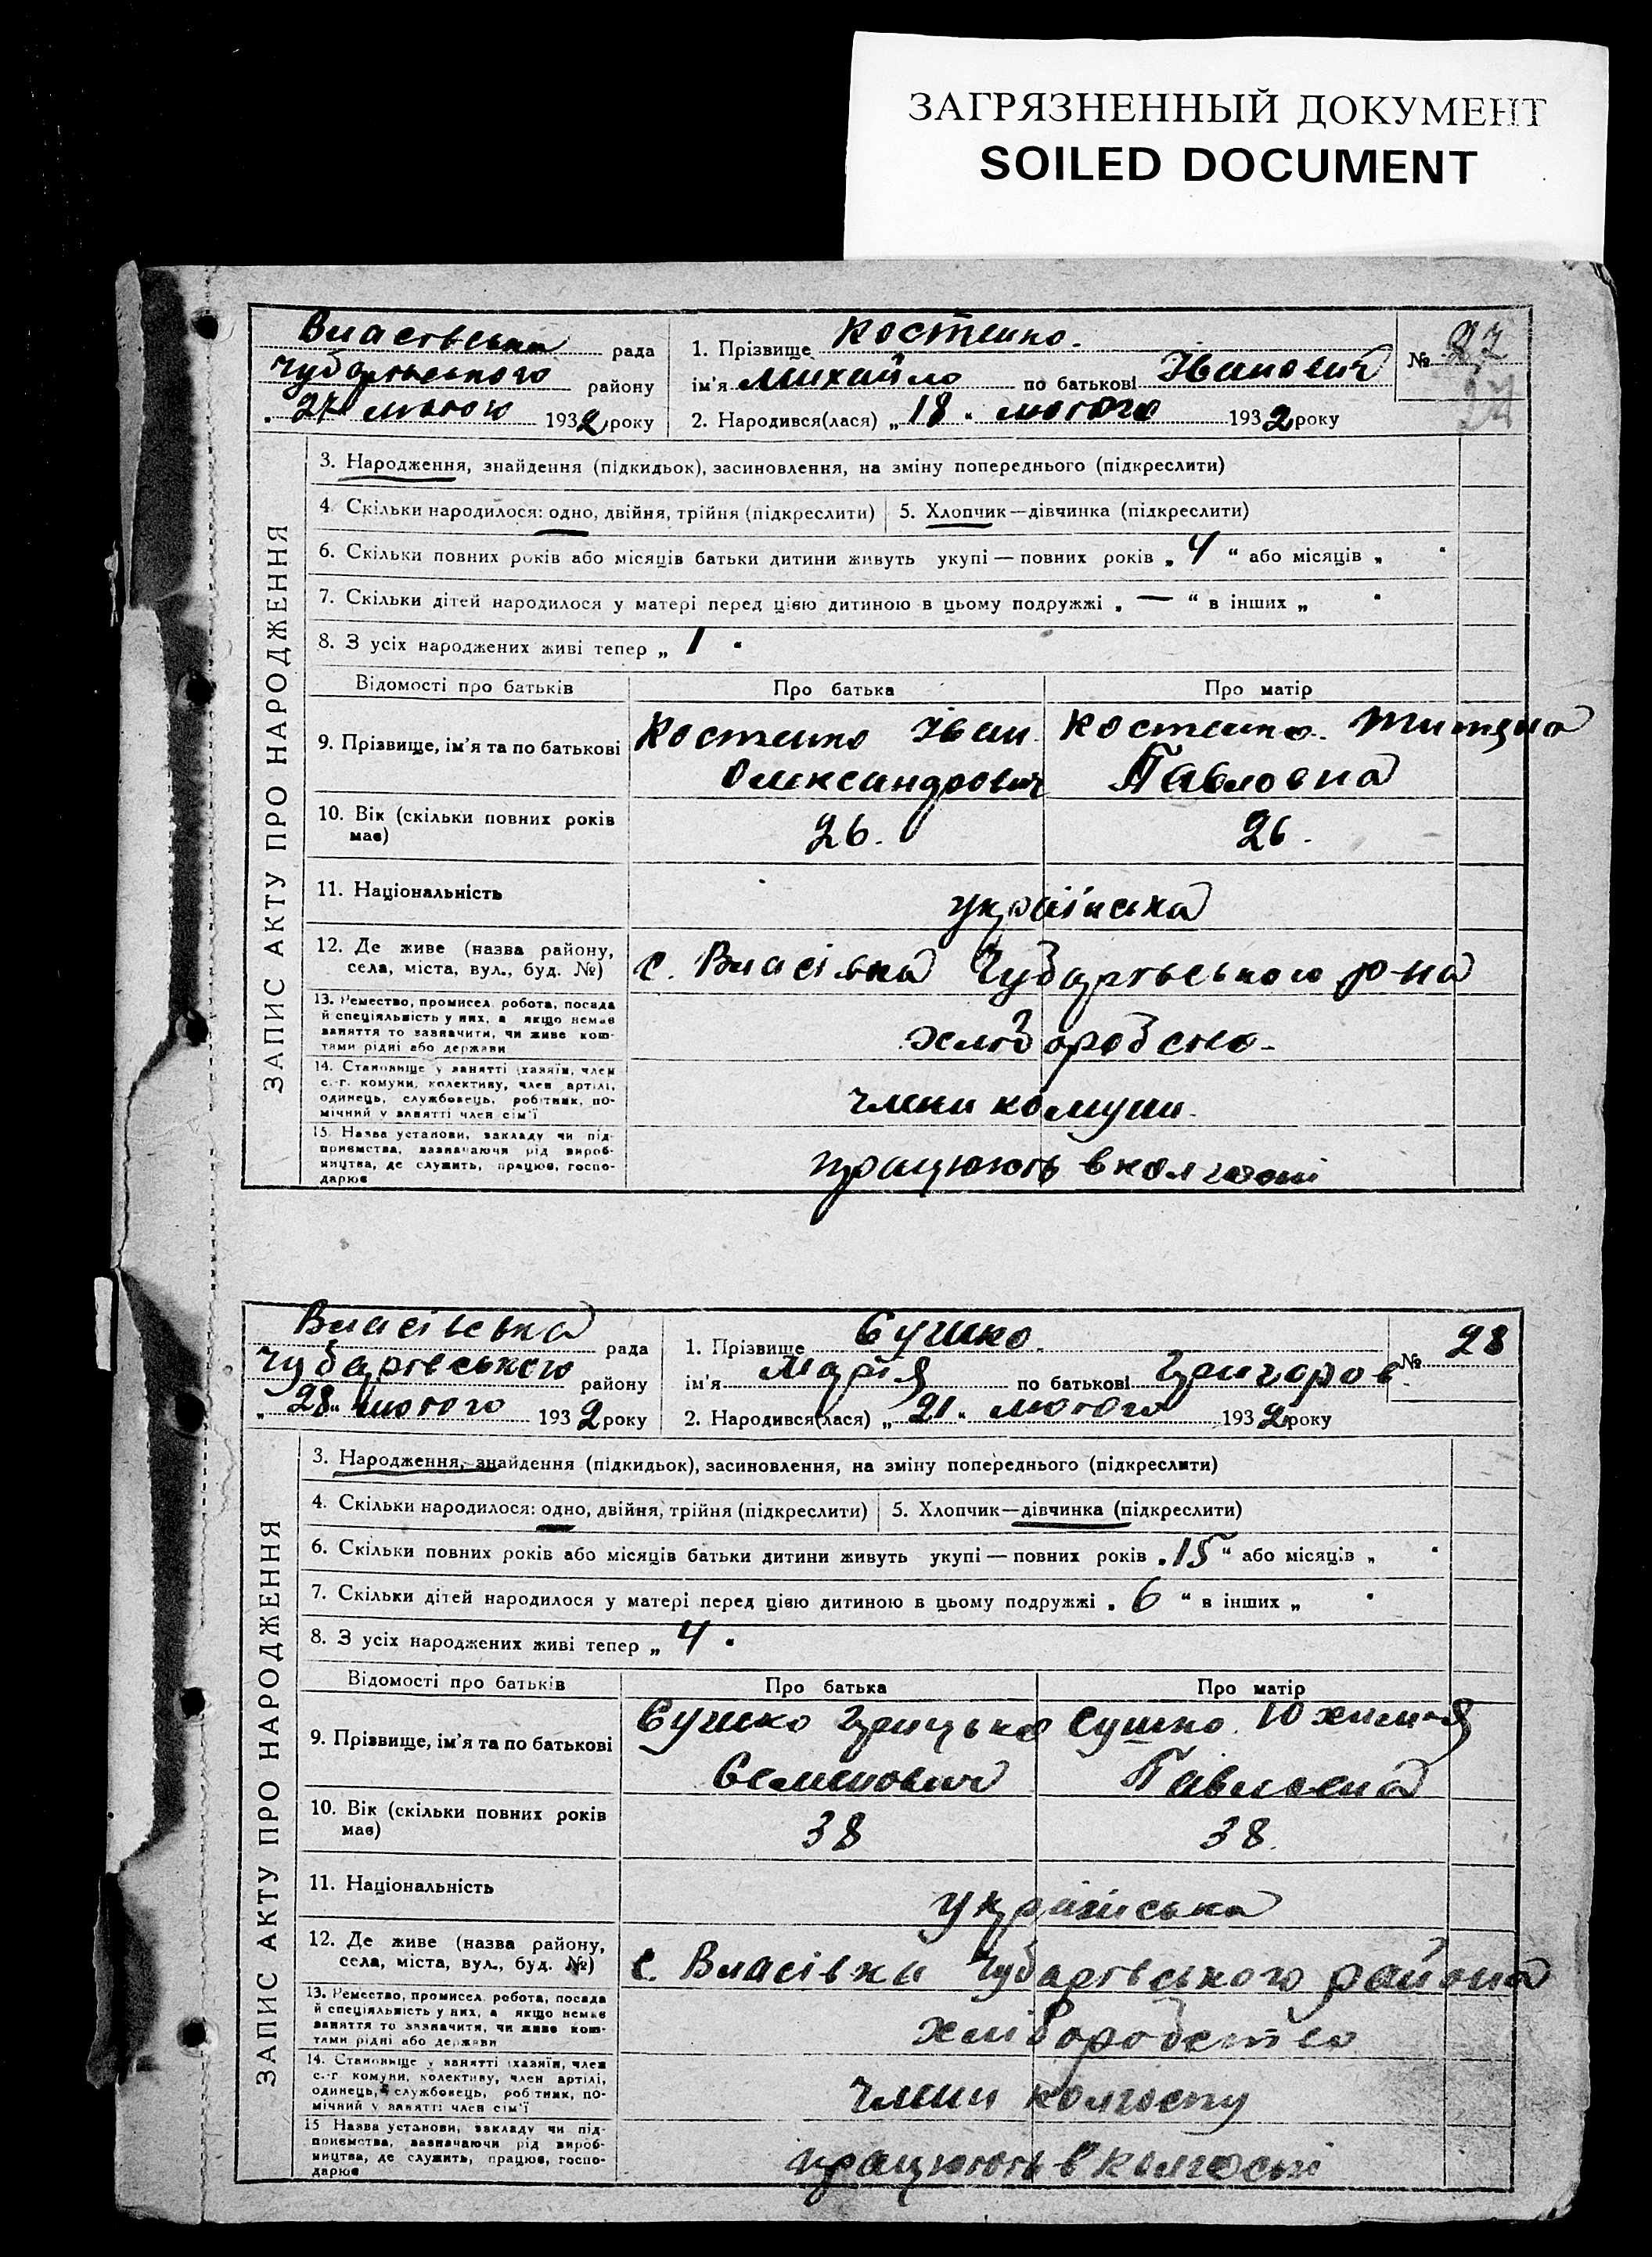 ЗАГРЯЗНЕННЫЙ ДОКУМЕНТ
SOILED DOCUMENT
Власівська рада
Чубарівського району
„27" лютого 1932 року
1. Прізвище Костенко.
ім'я Михайло по батькові Іванович
2. Народився(лася) „18" лютого 1932 року
№ 27
27
ЗАПИС АКТУ ПРО НАРОДЖЕННЯ
3. Народження, знайдення (підкидьок), засиновлення, на зміну попереднього (підкреслити)
4. Скільки народилося: одно, двійня, трійня (підкреслити) 5. Хлопчик—дівчинка (підкреслити)
6. Скільки повних років або місяців батьки дитини живуть укупі — повних років „4" або місяців „ "
7. Скільки дітей народилося у матері перед цією дитиною в цьому подружжі „—" в інших „ "
8. З усіх народжених живі тепер „1"
Відомості про батьків Про батька Про матір
9. Прізвище, ім'я та по батькові Костенко Іван Костенко Титяна
Олександрович Павловна
10. Вік (скільки повних років 26. 26.
має)
11. Національність українська
12. Де живе (назва району,
села, міста, вул., буд. №) с. Власівка Чубарівського р-на
13. Ремество, промисел, робота, посада
й спеціяльність у них, а якщо немає
заняття то зазначити, чи живе кош-
тами рідні або держави
хліборобство.
14. Становище у занятті (хазяїн, член
с.-г. комуни, колективу, член артілі,
одинець, службовець, робітник, по-
мічний у занятті член сім'ї
члени комуни.
15. Назва установи, закладу чи під-
приємства, зазначаючи рід вироб-
ництва, де служить, працює, госпо-
дарює
працюють в колгоспі
Власівська рада
Чубарівського району
„28" лютого 1932 року
1. Прізвище Сушко.
ім'я Марія по батькові Григоров.
2. Народився(лася) „21" лютого 1932 року
№ 28
ЗАПИС АКТУ ПРО НАРОДЖЕННЯ
3. Народження, знайдення (підкидьок), засиновлення, на зміну попереднього (підкреслити)
4. Скільки народилося: одно, двійня, трійня (підкреслити) 5. Хлопчик—дівчинка (підкреслити)
6. Скільки повних років або місяців батьки дитини живуть укупі — повних років „15" або місяців „ "
7. Скільки дітей народилося у матері перед цією дитиною в цьому подружжі „6" в інших „ "
8. З усіх народжених живі тепер „4"
Відомості про батьків Про батька Про матір
9. Прізвище, ім'я та по батькові Сушко Грицько Сушко Юхимия
Семенович Павловна
10. Вік (скільки повних років 38 38.
має)
11. Національність українська
12. Де живе (назва району,
села, міста, вул., буд. №) с. Власівка Чубарівського района
13. Ремество, промисел, робота, посада
й спеціяльність у них, а якщо немає
заняття то зазначити, чи живе кош-
тами рідні або держави
хліборобство
14. Становище у занятті (хазяїн, член
с.-г. комуни, колективу, член артілі,
одинець, службовець, робітник, по-
мічний у занятті член сім'ї
члени колгоспу
15. Назва установи, закладу чи під-
приємства, зазначаючи рід вироб-
ництва, де служить, працює, госпо-
дарює
працюють в колгоспі